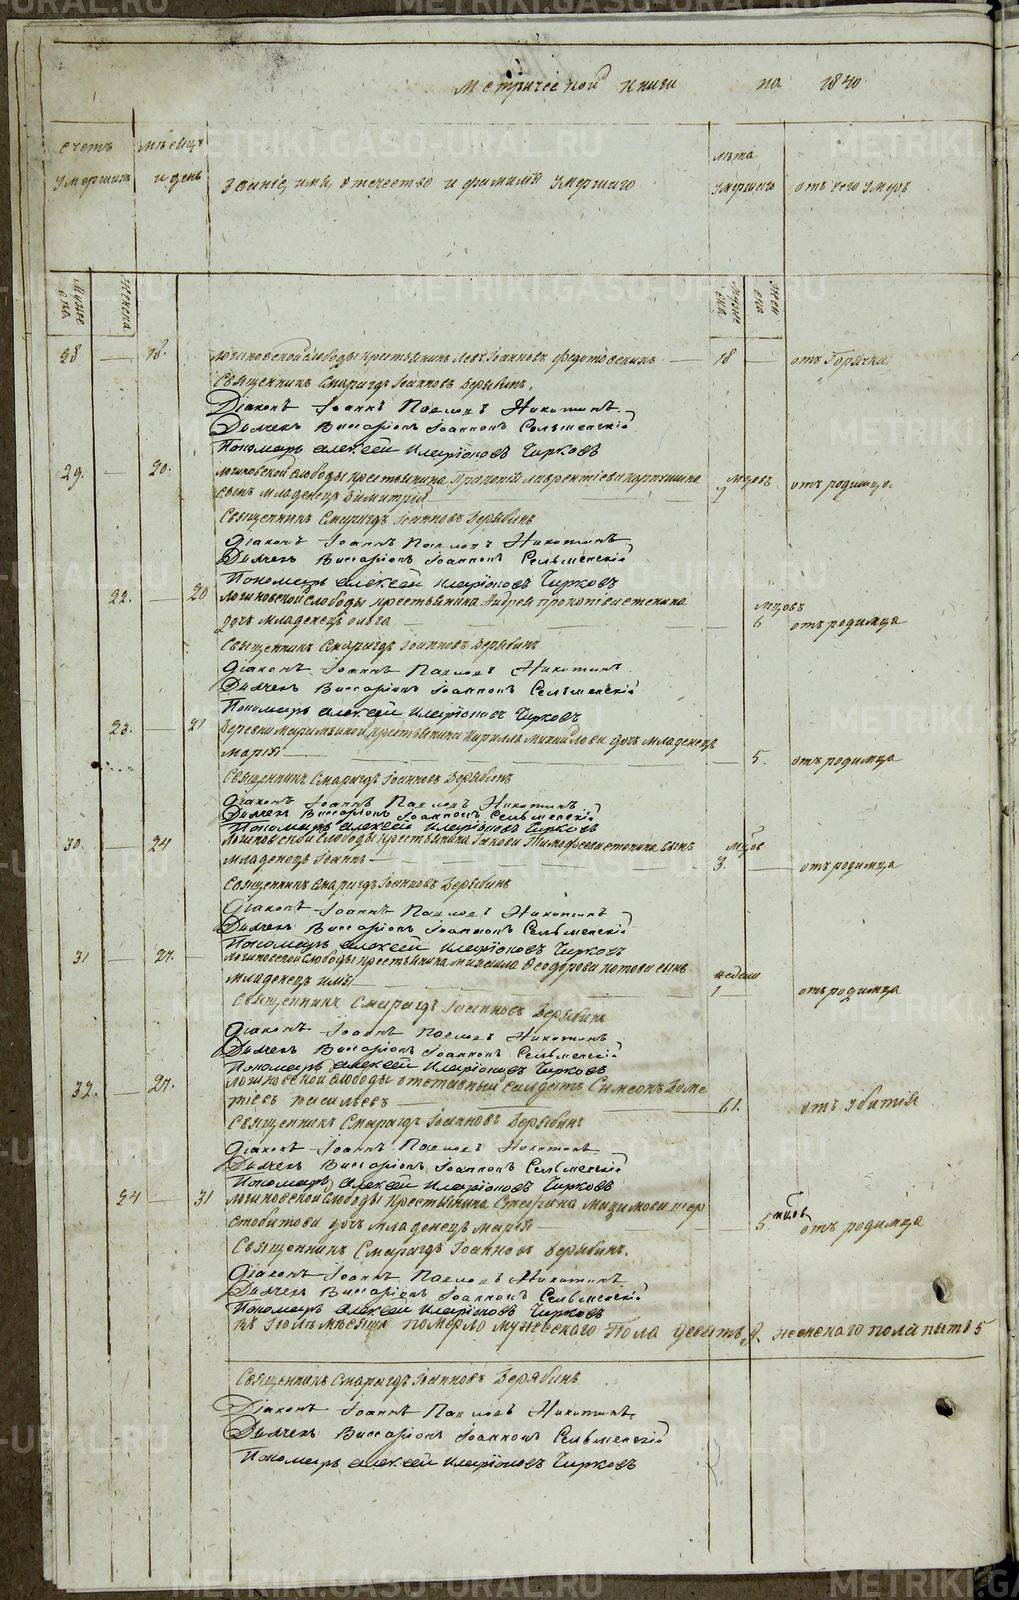 Метрической книги на 1840
счетъ умершихъ
мѣсяцъ и день
Званіе, имя, отечество и фамилія умершаго
лѣта умершаго
отъ чего умеръ
мужеска
женска
мужеска
женска
28 — 18. Логиновской слободы крестьянинъ Левъ Іоанновъ Федотовскихъ — 18 — отъ Горячки
Священникъ Смарагдъ Іоанновъ Дерябинъ.
Діаконъ Іоаннъ Павловъ Никитинъ
Дьячекъ Виссаріонъ Іоанновъ Сельменскій
Пономарь Алексей Иларіоновъ Чирковъ
29. — 20. Логиновской слободы крестьянина Прокопія Лаврентіева
сынъ младенецъ Димитрій мцовъ отъ родимца.
Священникъ Смарагдъ Іоанновъ Дерябинъ
Діаконъ Іоаннъ Павловъ Никитинъ
Дьячекъ Виссаріонъ Іоанновъ Сельменскій
Пономарь Алексей Иларіоновъ Чирковъ
22. — 20 Логиновской слободы крестьянина Андрея Прокопіева Стенина
дочь младенецъ Ольга — мцовъ 6 отъ родимца
Священникъ Смарагдъ Іоанновъ Дерябинъ
Діаконъ Іоаннъ Павловъ Никитинъ
Дьячекъ Виссаріонъ Іоанновъ Сельменскій
Пономарь Алексей Иларіоновъ Чирковъ
23. — 21 деревни крестьянина Кирилла Михайлова дочь младенецъ
Марія — 5. отъ родимца
Священникъ Смарагдъ Іоанновъ Дерябинъ
Діаконъ Іоаннъ Павловъ Никитинъ
Дьячекъ Виссаріонъ Іоанновъ Сельменскій
Пономарь Алексей Иларіоновъ Чирковъ
30 — 24 Логиновской слободы крестьянина Іакова Тимофеева Стенина сынъ
младенецъ Іоаннъ — мцов 3. — отъ родимца
Священникъ Смарагдъ Іоанновъ Дерябинъ
Діаконъ Іоаннъ Павловъ Никитинъ
Дьячекъ Виссаріонъ Іоанновъ Сельменскій
Пономарь Алексей Иларіоновъ Чирковъ
31 — 27. Логиновской слободы крестьянина Михаила Феодорова Котова сынъ
младенецъ Илья недели 1 — отъ родимца
Священникъ Смарагдъ Іоанновъ Дерябинъ
Діаконъ Іоаннъ Павловъ Никитинъ
Дьячекъ Виссаріонъ Іоанновъ Сельменскій
Пономарь Алексей Иларіоновъ Чирковъ
32. — 27. Логиновской слободы отставный солдатъ Симеонъ
Васильевъ — 61. отъ убитія
Священникъ Смарагдъ Іоанновъ Дерябинъ
Діаконъ Іоаннъ Павловъ Никитинъ
Дьячекъ Виссаріонъ Іоанновъ Сельменскій
Пономарь Алексей Иларіоновъ Чирковъ
24 — 31 Логиновской слободы крестьянина Стефана Максимова Пер
стобитова дочь младенецъ Марія — 5 мцовъ отъ родимца
Священникъ Смарагдъ Іоанновъ Дерябинъ.
Діаконъ Іоаннъ Павловъ Никитинъ
Дьячекъ Виссаріонъ Іоанновъ Сельменскій
Пономарь Алексей Иларіоновъ Чирковъ
въ Іюлѣ мѣсяцѣ померло мужескаго пола девять 9. женскаго пола пять 5
Священникъ Смарагдъ Іоанновъ Дерябинъ
Діаконъ Іоаннъ Павловъ Никитинъ.
Дьячекъ Виссаріонъ Іоанновъ Сельменскій
Пономарь Алексей Иларіоновъ Чирковъ
METRIKI.GASO-URAL.RU